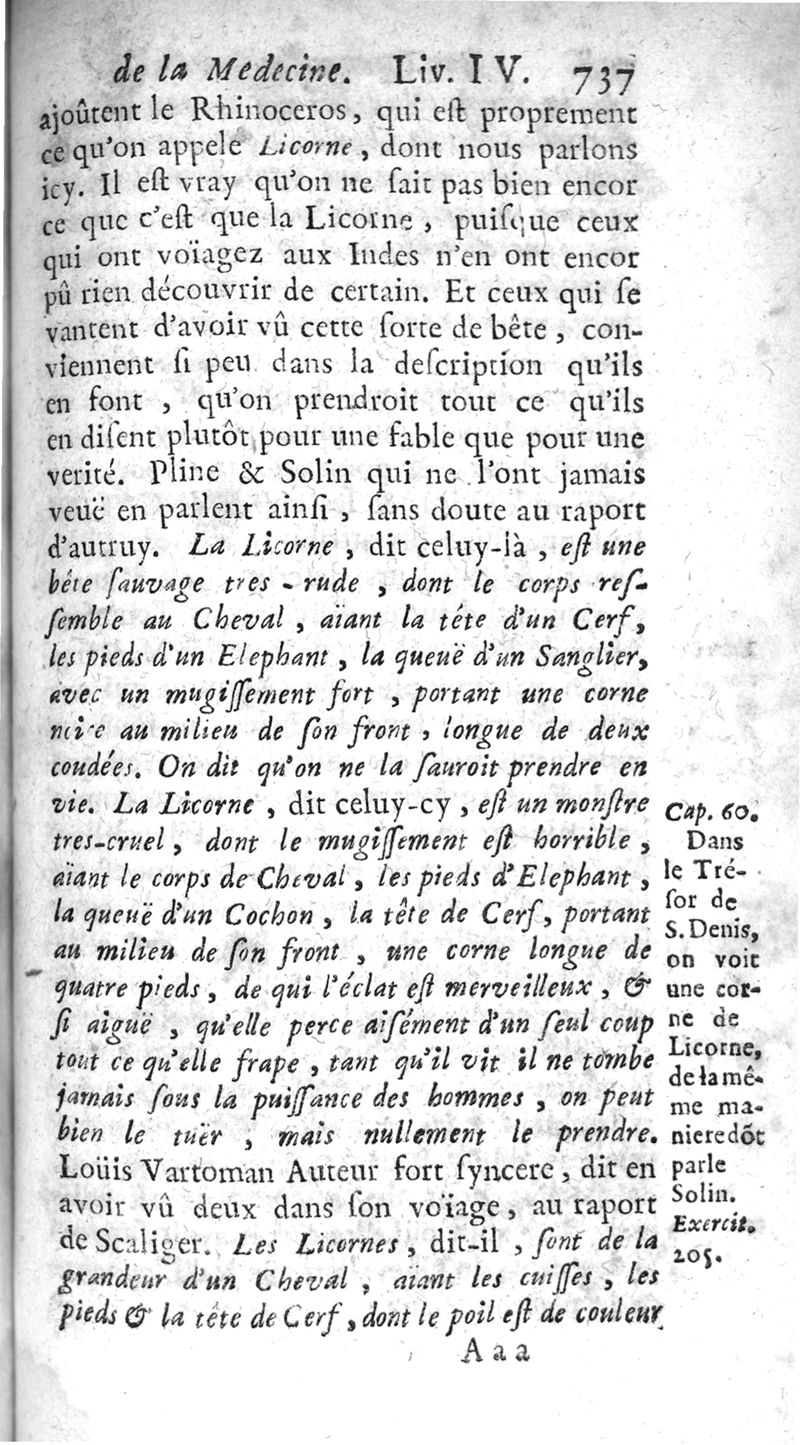 de la Medecine. Liv. IV. 737
ajoûtent le Rhinoceros, qui eſt proprement
ce qu'on appele Licorne, dont nous parlons
icy. Il eſt vray qu'on ne ſait pas bien encor
ce que c'eſt que la Licorne, puiſque ceux
qui ont voïagez aux Indes n'en ont encor
pû rien découvrir de certain. Et ceux qui ſe
vantent d'avoir vû cette ſorte de bête, con-
viennent ſi peu dans la deſcription qu'ils
en font, qu'on prendroit tout ce qu'ils
en diſent plutôt pour une fable que pour une
verité. Pline & Solin qui ne l'ont jamais
veuë en parlent ainſi, ſans doute au raport
d'autruy. La Licorne, dit celuy-là, eſt une
bête ſauvage tres-rude, dont le corps reſ-
ſemble au Cheval, aïant la téte d'un Cerf,
les pieds d'un Elephant, la queuë d'un Sanglier,
avec un mugiſſement fort, portant une corne
noire au milieu de ſon front, longue de deux
coudées. On dit qu'on ne la ſauroit prendre en
vie. La Licorne, dit celuy-cy, eſt un monſtre
tres-cruel, dont le mugiſſement eſt horrible,
aïant le corps de Cheval, les pieds d'Elephant,
la queuë d'un Cochon, la tête de Cerf, portant
au milieu de ſon front, une corne longue de
quatre pieds, de qui l'éclat eſt merveilleux, &
ſi aiguë, qu'elle perce aiſément d'un ſeul coup
tout ce qu'elle frape, tant qu'il vit il ne tombe
jamais ſous la puiſſance des hommes, on peut
bien le tuër, mais nullement le prendre.
Loüis Vartoman Auteur fort ſyncere, dit en
avoir vû deux dans ſon voïage, au raport
de Scaliger. Les Licornes, dit-il, ſont de la
grandeur d'un Cheval, aïant les cuiſſes, les
pieds & la tête de Cerf, dont le poil eſt de couleur
Aaa
Cap. 60.
Dans
le Tré-
ſor de
S. Denis,
on voit
une cor-
ne de
Licorne,
de la mê-
me ma-
niere dôt
parle
Solin.
Exercit.
205.